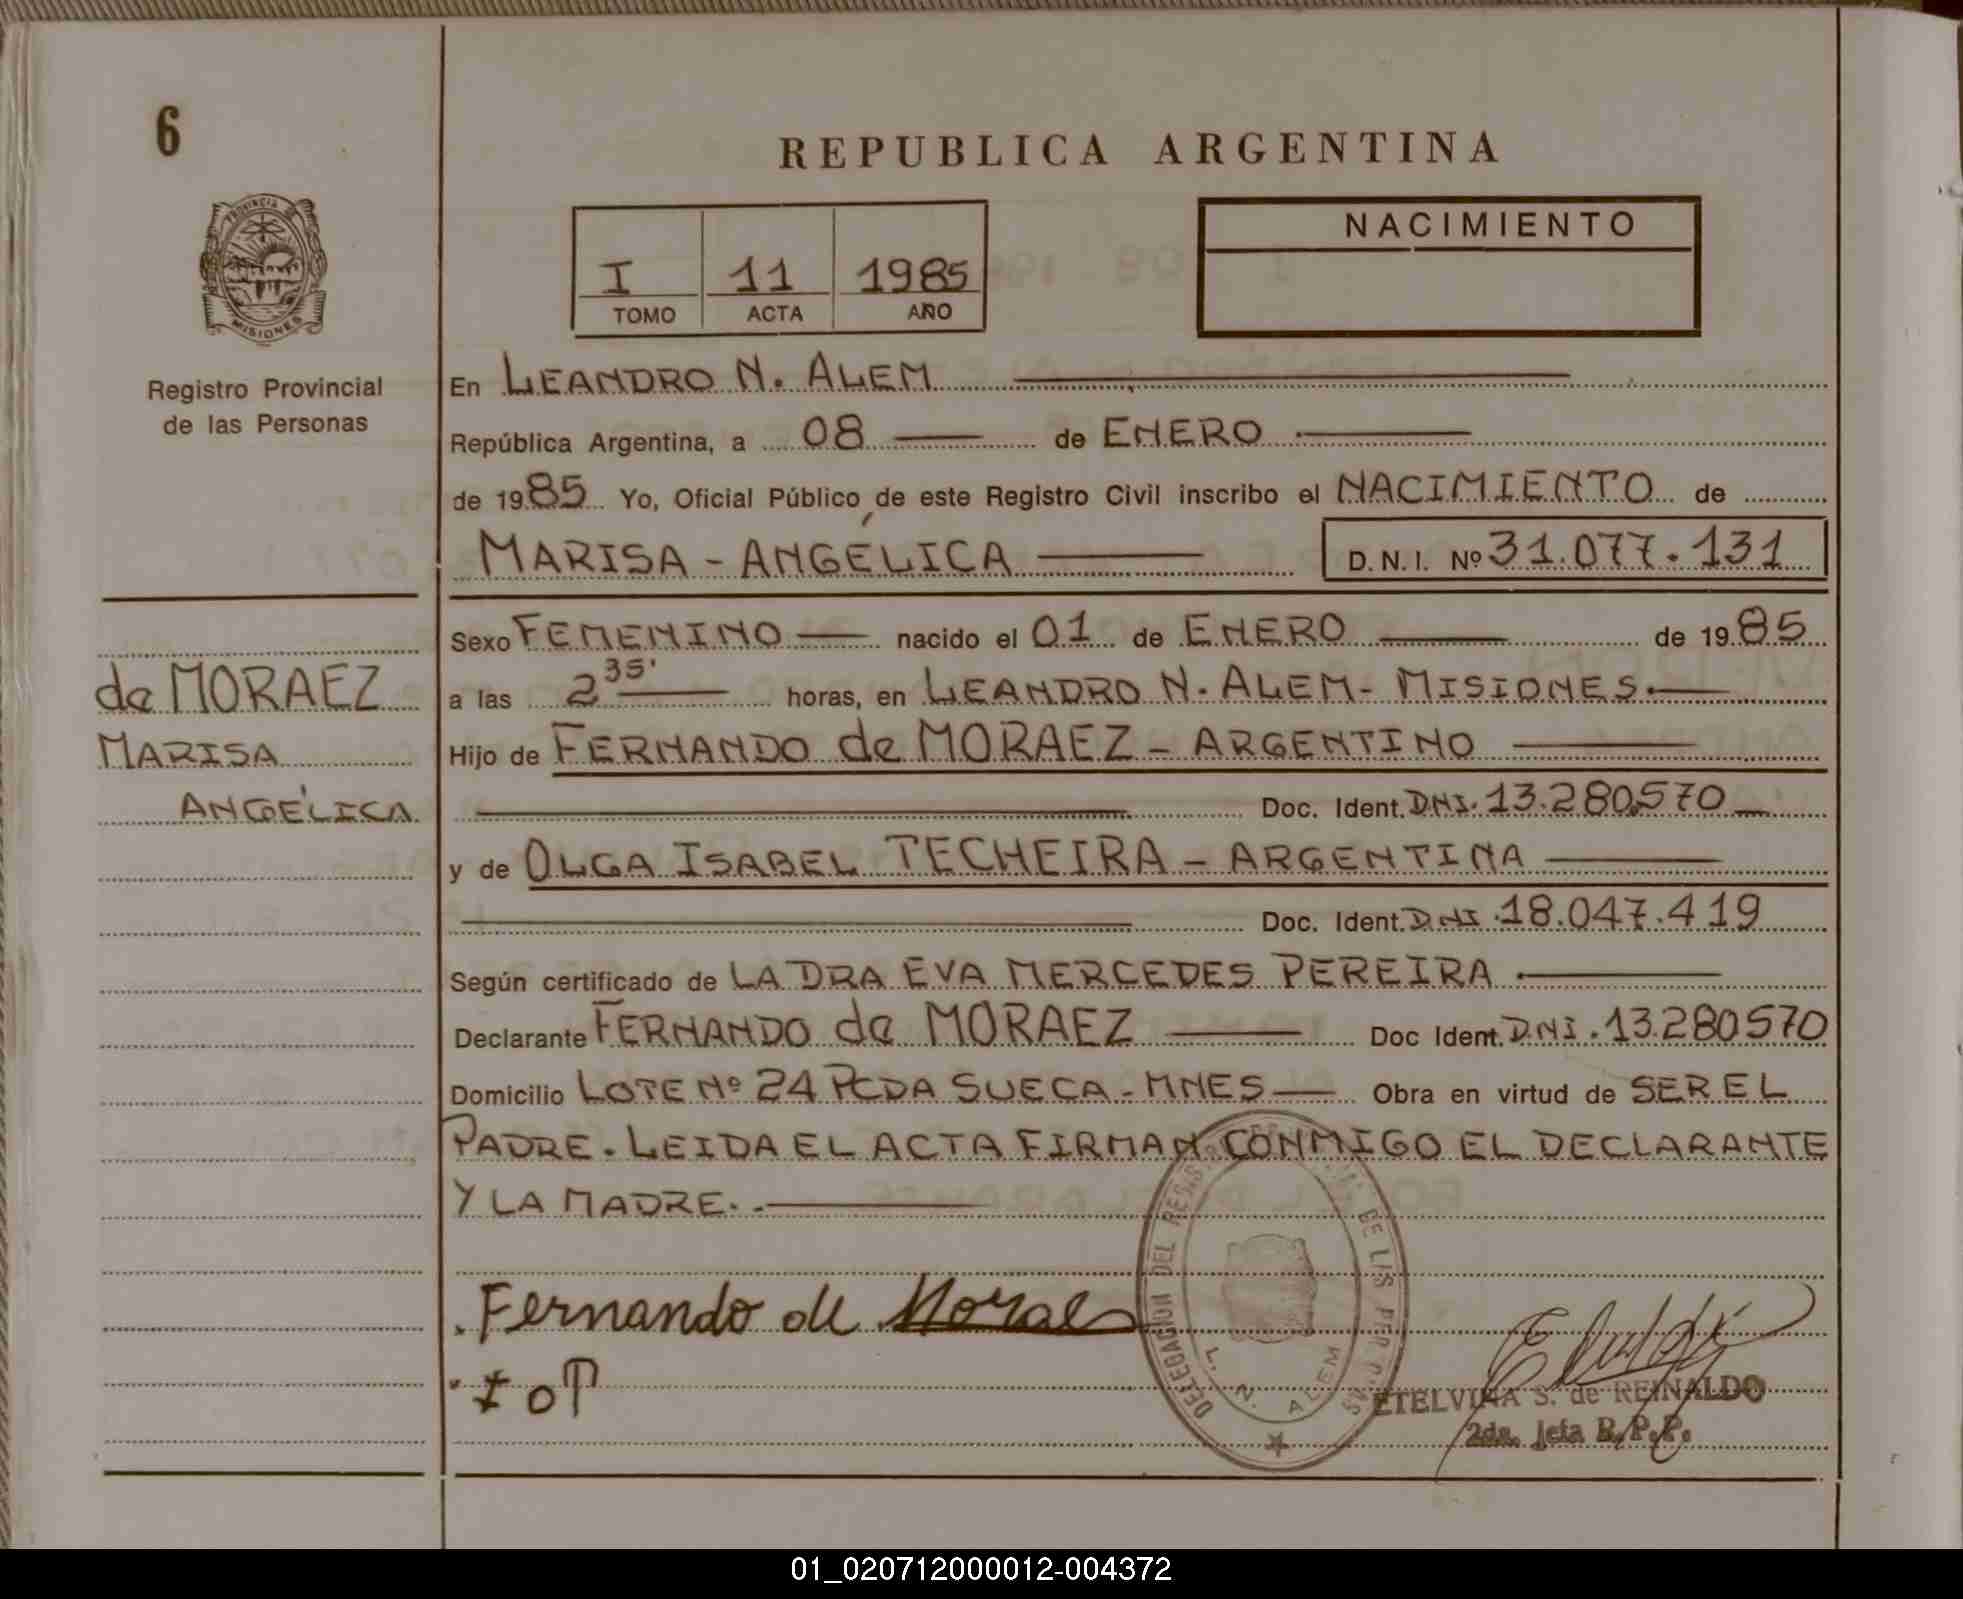 6
REPUBLICA ARGENTINA
PROVINCIA DE
MISIONES
Registro Provincial
de las Personas
I 11 1985
TOMO ACTA AÑO
NACIMIENTO
En LEANDRO N. ALEM
República Argentina, a 08 de ENERO
de 1985 Yo, Oficial Público de este Registro Civil inscribo el NACIMIENTO de
MARISA - ANGÉLICA D.N.I. Nº 31.077.131
Sexo FEMENINO nacido el 01 de ENERO de 1985
a las 2 35' horas, en LEANDRO N. ALEM - MISIONES.
Hijo de FERNANDO de MORAEZ - ARGENTINO
Doc. Ident. DNI. 13.280.570
y de OLGA ISABEL TECHEIRA - ARGENTINA
Doc. Ident. DNI. 18.047.419
Según certificado de LA DRA EVA MERCEDES PEREIRA
Declarante FERNANDO de MORAEZ Doc Ident. DNI. 13.280570
Domicilio LOTE Nº 24 PCDA SUECA - MNES Obra en virtud de SER EL
PADRE. LEIDA EL ACTA FIRMAN CONMIGO EL DECLARANTE
Y LA MADRE.
de MORAEZ
MARISA
ANGÉLICA
Fernando de Moraes
I O T
DELEGACION DEL DE LAS PERSONAS
L. N. ALEM
ETELVINA S. de REINALDO
2da. Jefa R.P.P.
01_020712000012-004372